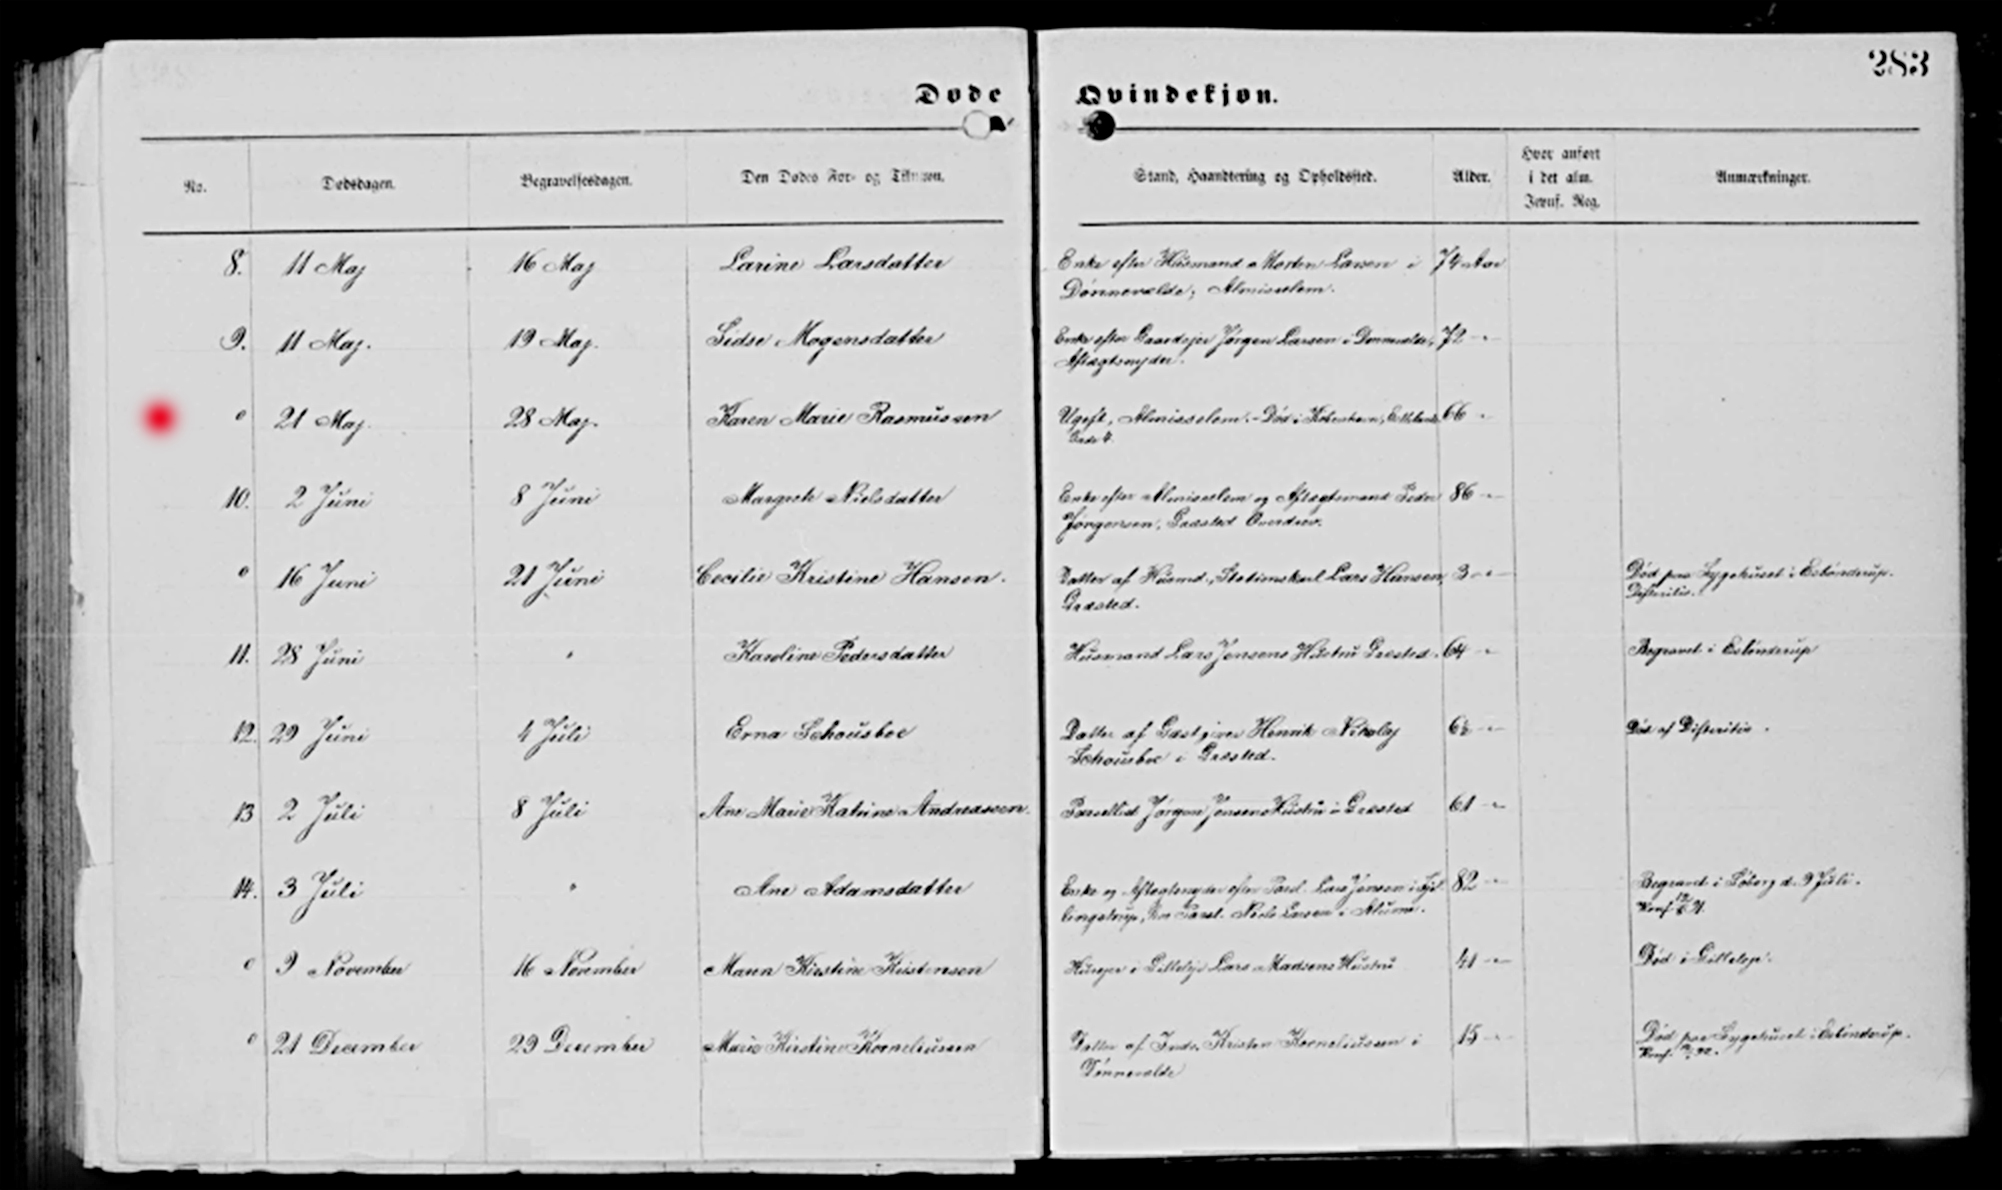 283
Døde Qvindekjøn.
No. Dødsdagen. Begravelsesdagen. Den Dødes For- og Tilnavn. Stand, Haandtering og Opholdssted. Alder. Hvor anført
i det alm.
Jevnf. Reg. Anmærkninger.
8. 11 Maj 16 Maj Larine Larsdatter Enke efter Husmand Morten Larsen i 74 Aar
Dønnevælde; Almisselem.
9. 11 Maj. 19 Maj. Sidse Mogensdatter Enke efter Gaardejer Jørgen Larsen i Dønnevælde, 72 -"-
Aftægtsnyder.
0 21 Maj. 28 Maj. Karen Marie Rasmussen Ugift, Almisselem. - Død i København, 66 -"-
Gade 4.
10. 2 Juni 8 Juni Margrete Nielsdatter Enke efter Almisselem og Aftægtsmand Peder 86 -"-
Jørgensen, Græsted Overdrev.
0 16 Juni 21 Juni Cecilie Kristine Hansen. Datter af Husmd., Stationskarl Lars Hansen, 3 -"- Død paa Sygehuset i Esbønderup.
Græsted. Difteritis.
11. 28 Juni " Karoline Pedersdatter Husmand Lars Jensens Hustru Græsted. 64 -"- Begravet i Esbønderup
12. 29 Juni 4 Juli Erna Schousboe Datter af Gæstgiver Henrik Nikolaj 6½ -"- Død af Difteritis.
Schousboe i Græsted.
13 2 Juli 8 Juli Ane Marie Katrine Andreassen. Parcellist Jørgen Jensens Hustru i Græsted 61 -"-
14. 3 Juli " Ane Adamsdatter Enke og Aftægtsnyder efter Parcl. Lars Jensen i 82 -"- Begravet i Søborg d. 9 Juli.
Niels Larsen i Alume. Konf.
0 9 November 16 November Maren Kirstine Kristensen Husejer i Gilleleje Lars Madsens Hustru 41 -"- Død i Gilleleje.
0 21 December 29 December Marie Kirstine Korneliussen Datter af Inds. Kristen Korneliussen i 15 -"- Død paa Sygehuset i Esbønderup.
Dønnevælde Konf.